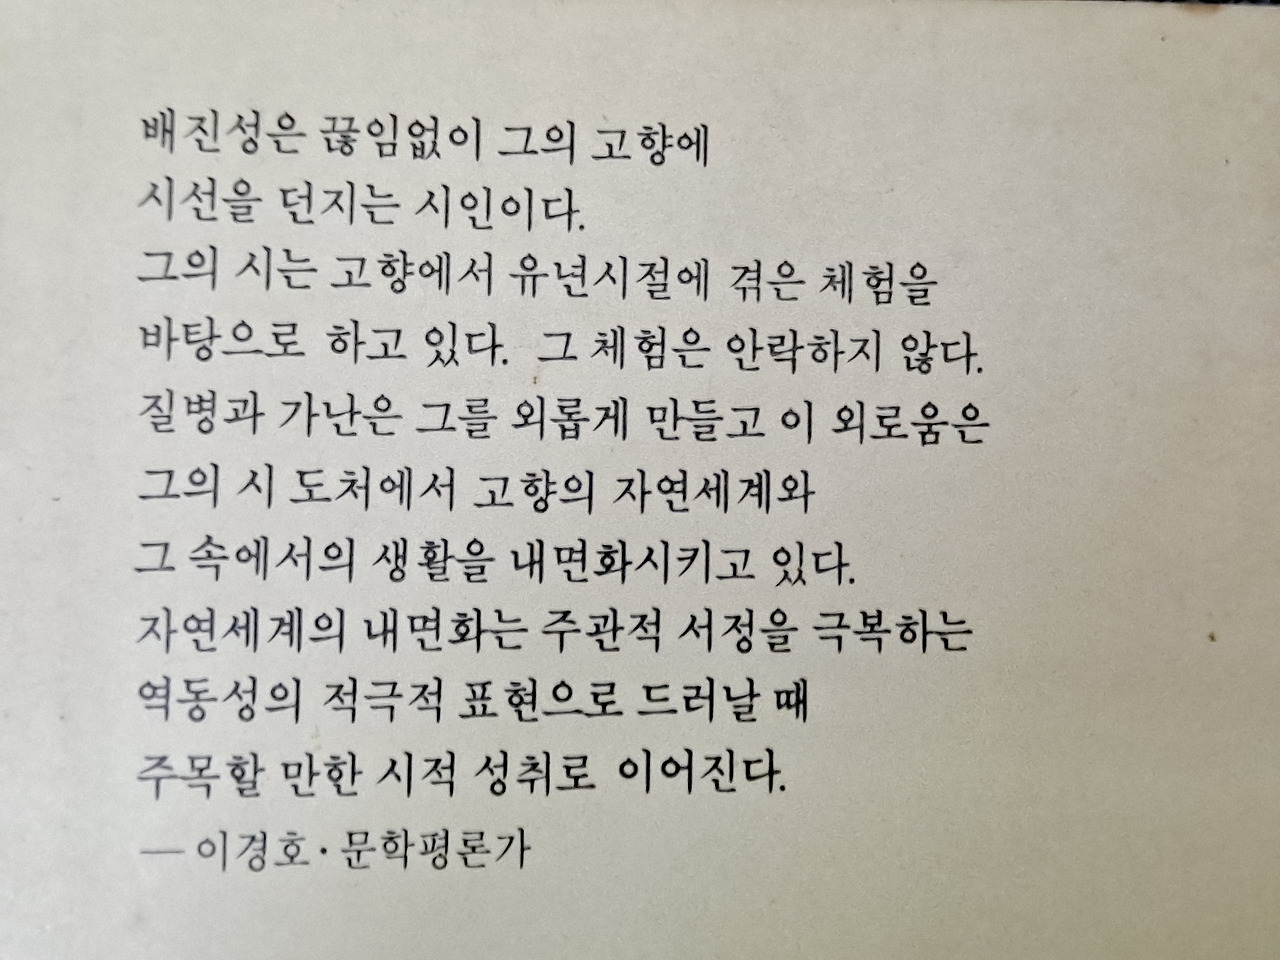 배진성은 끊임없이 그의 고향에
시선을 던지는 시인이다.
그의 시는 고향에서 유년시절에 겪은 체험을
바탕으로 하고 있다. 그 체험은 안락하지 않다.
질병과 가난은 그를 외롭게 만들고 이 외로움은
그의 시 도처에서 고향의 자연세계와
그 속에서의 생활을 내면화시키고 있다.
자연세계의 내면화는 주관적 서정을 극복하는
역동성의 적극적 표현으로 드러날 때
주목할 만한 시적 성취로 이어진다.
— 이경호·문학평론가